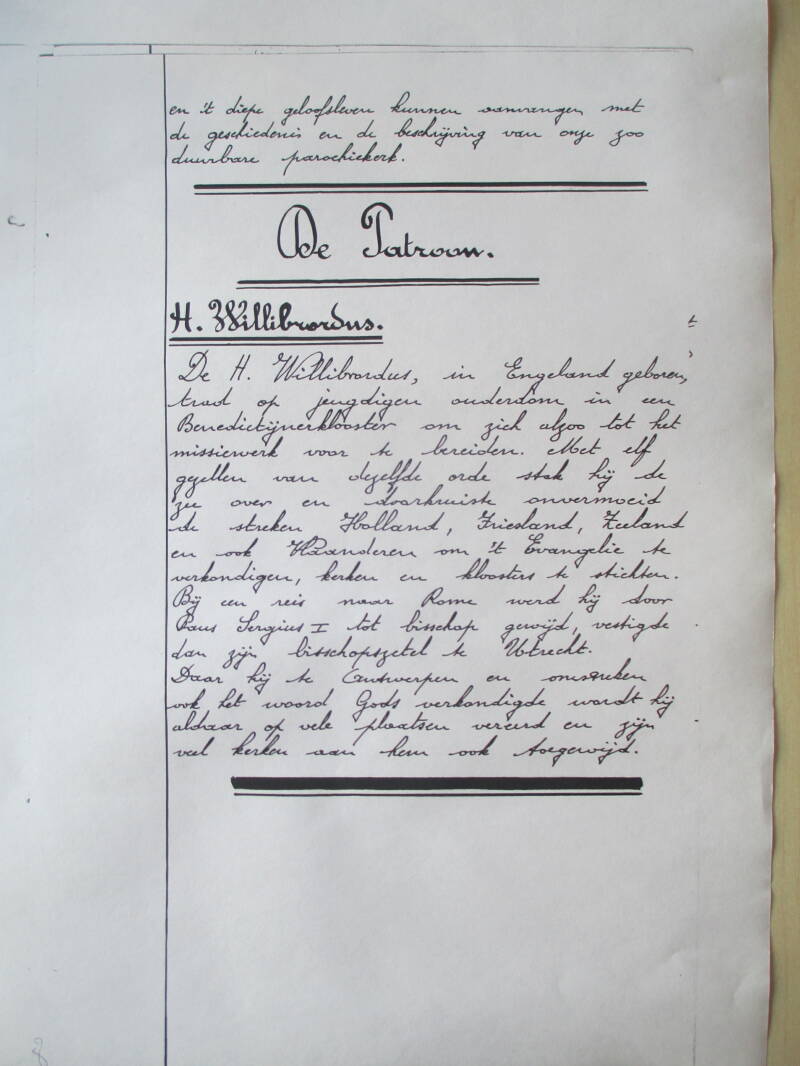 en 't diepe geloofsleven kunnen aanvangen met
de geschiedenis en de beschrijving van onze zoo
duurbare parochiekerk.
De Patroon.
H. Willibrordus.
De H. Willibrordus, in Engeland geboren,
trad op jeugdigen ouderdom in een
Benedictijnerklooster om zich alzoo tot het
missiewerk voor te bereiden. Met elf
gezellen van dezelfde orde stak hij de
zee over en doorkruiste onvermoeid
de streken Holland, Friesland, Zeeland
en ook Vlaanderen om 't Evangelie te
verkondigen, kerken en kloosters te stichten.
Bij een reis naar Rome werd hij door
Paus Sergius I tot bisschop gewijd, vestigde
dan zijn bisschopszetel te Utrecht.
Daar hij te Antwerpen en omstreken
ook het woord Gods verkondigde wordt hij
aldaar op vele plaatsen vereerd en zijn
veel kerken aan hem ook toegewijd.
8